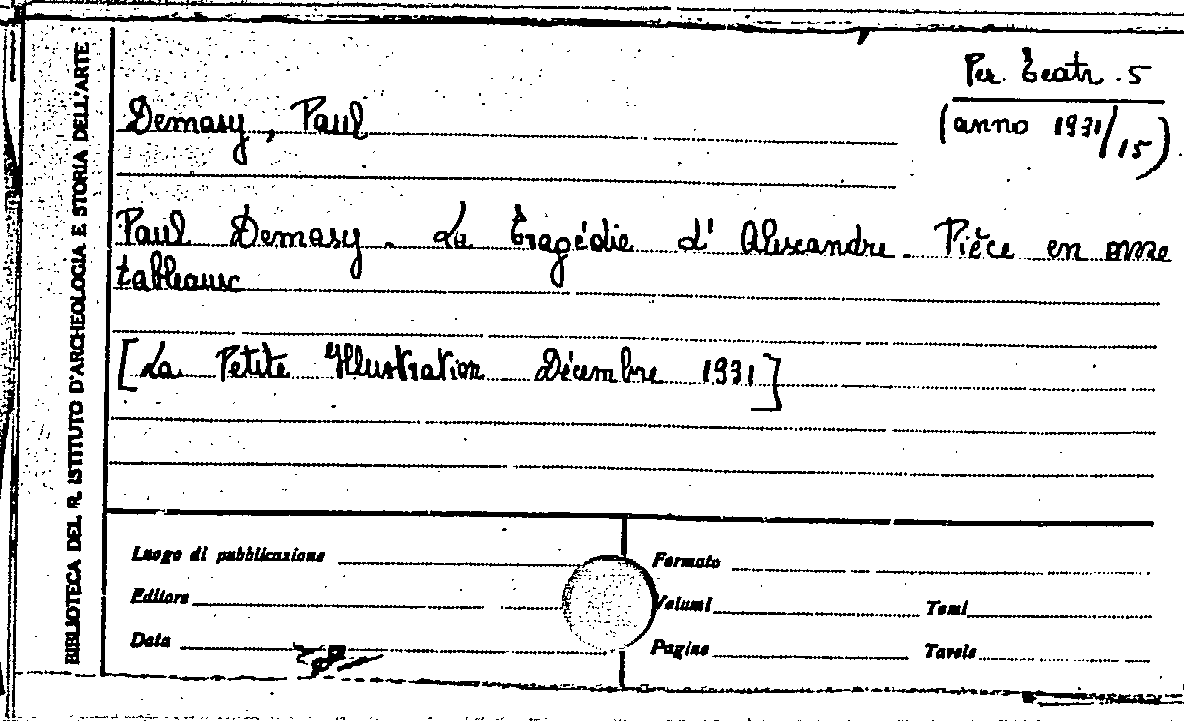 BIBLIOTECA DEL R. ISTITUTO D'ARCHEOLOGIA E STORIA DELL'ARTE
Per. Teatr. 5
(anno 1931/15)
Demasy, Paul
Paul Demasy. La Tragédie d'Alexandre. Pièce en onze
tableaux
[La Petite Illustration Décembre 1931]
Luogo di pubblicazione
Formato
Editore
Volumi
Tomi
Data
Pagine
Tavole